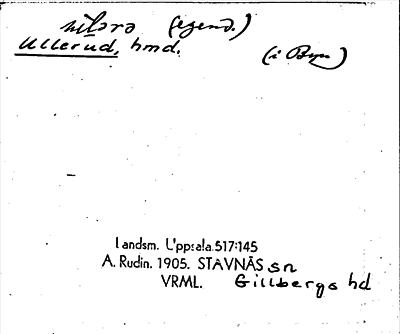 (egend.)
Ullerud, hmd. (i Byn)
Landsm. Uppsala 517:145
A. Rudin. 1905. STAVNÄS sn
VRML. Gillbergs hd